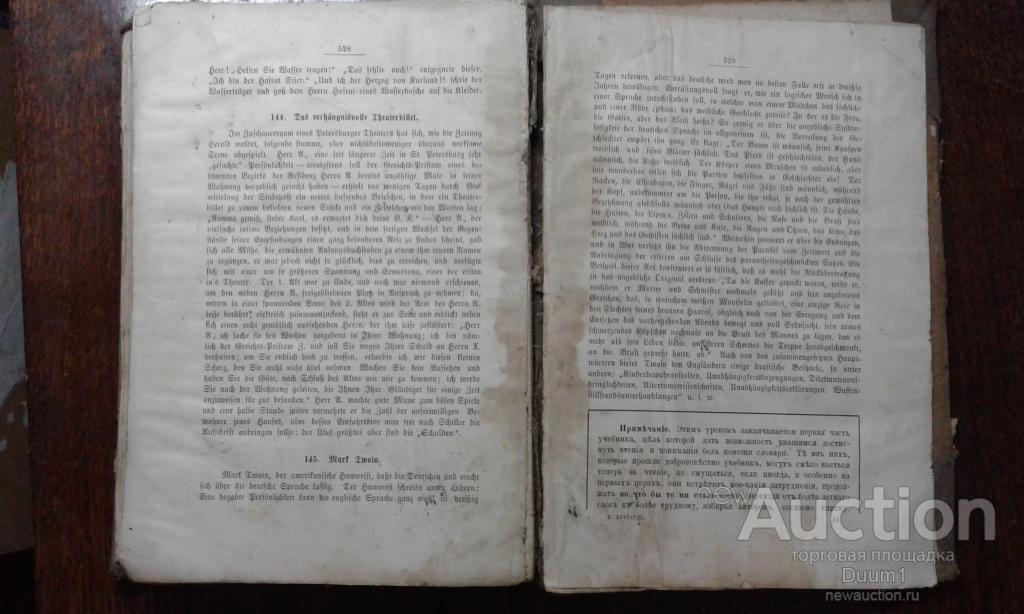 528
Herr! Helfen Sie Wasser tragen!" „Das fehlte noch!" entgegnete dieser.
„Ich bin der Hofrat Stier." „Und ich der Herzog von Kurland!" schrie der
Wasserträger und goß dem Herrn Hofrat eines Wasserdusche auf die Kleider.
144. Das verhängnisvolle Theaterbillet.
Im Zuschauerraum eines Petersburger Theaters hat sich, wie die Zeitung
Herold meldet, folgende stumme, aber nichtsdestoweniger überaus wirksame
Scene abgespielt. Herr A., eine seit längerer Zeit in St. Petersburg sehr
„gesuchte" Persönlichkeit — wenigstens soll der Gerichts-Pristaw eines be-
stimmten Bezirks der Residenz Herrn A. bereits unzählige Male in seiner
Wohnung vergeblich gesucht haben — erhielt vor wenigen Tagen durch Ver-
mittelung der Stadtpost ein nettes duftendes Briefchen, in dem ein Theater-
billet zu einem beliebten neuen Stücke und ein Zettelchen mit den Worten lag:
„Komme gewiß, lieber Karl, es erwartet dich deine B. K." — Herr A., der
vielfache intime Beziehungen besitzt, und in dem stetigen Wechsel der Gegen-
stände seiner Empfindungen einen ganz besonderen Reiz zu finden scheint, gab
sich alle Mühe, die erwähnten Anfangsbuchstaben zu einem ihm teuren Namen
zu ergänzen, er war jedoch nicht so glücklich, dies zu erreichen, und verfügte
sich mit einer um so größeren Spannung und Erwartung, einer der ersten
in's Theater. Der 1. Akt war zu Ende, und noch war niemand erschienen,
um den neben Herrn A. freigebliebenen Platz in Anspruch zu nehmen; da,
mitten in einer spannenden Scene des 2. Aktes wird der Arm des Herrn A.
leise berührt, elektrisch zusammenzuckend, sieht er zur Seite und erblickt neben
sich einen recht gemütlich aussehenden Herrn, der ihm leise zuflüstert: „Herr
A., ich suche sie seit Wochen vergebens in Ihrer Wohnung; ich bin näm-
lich der Gerichts-Pristaw Z. und soll Sie wegen Ihrer Schuld an Herrn X.
verhaften; um Sie endlich doch zu treffen, erlaubte ich mir diesen kleinen
Scherz, den Sie wohl nicht übel nehmen. Machen Sie kein Aufsehen und
haben Sie die Güte, nach Schluß des Aktes mit mir zu kommen; ich werde
Sie nach der Wohnung geleiten, die Ihnen Ihre Gläubiger für einige Zeit
anzuweisen für gut befanden." Herr A. machte gute Miene zum bösen Spiele
und eine halbe Stunde später vermehrte er die Zahl der unfreiwilligen Be-
wohner jenes Hauses, über dessen Einfahrtstor man frei nach Schiller die
Aufschrift anbringen sollte: der Übel größtes aber sind die „Schulden".
145. Mark Twain.
Mark Twain, der amerikanische Humorist, haßt die Deutschen und macht
sich über die deutsche Sprache lustig. Der Humorist schreibt unter andern:
Eine begabte Persönlichkeit kann die englische Sprache ganz wohl in dreißig
529
Tagen erlernen, aber das deutsche wird man im besten Falle erst in dreißig
Jahren bewältigen. Entrüstungsvoll fragt er, wie ein logischer Mensch sich in
einer Sprache zurechtfinden soll, in welcher man einem Mädchen das sächliche
und einer Rübe das weibliche Geschlecht zuteile? In der es die Frau,
die Gattin, aber das Weib heiße? So zornig er über die angebliche System-
losigkeit der deutschen Sprache im allgemeinen ist, die Verteilung der Ge-
schlechter empört ihn ganz. Er klagt: „Der Baum ist männlich, seine Knospen
weiblich und seine Blätter sächlich. Das Pferd ist geschlechtslos, der Hund
männlich, die Katze weiblich. Der Körper eines Menschen ist männlich, aber
wie wunderbar teilen sich die Partien desselben in Geschlechter ein! Der
Nacken, die Ellenbogen, die Finger, Nägel und Füße sind männlich, während
der Kopf, unbekümmert um die Person, die ihn trägt, je nach der gewählten
Bezeichnung gleichfalls männlich oder (das Haupt) auch sächlich ist. Die Hände,
die Hüften, die Lippen, Zehen und Schultern, die Nase und die Brust sind
weiblich, während die Beine und Knie, die Augen und Ohren, das Kinn, das
Herz und das Gewissen sächlich sind." Weiterhin jammert er über die Endungen,
und in Wut versetzt ihn die Abtrennung der Partikel vom Zeitwort und die
Anbringung der ersteren am Schlusse des parenthesengeschmückten Satzes. Ein
Beispiel dieser Art konstruiert er so köstlich, daß es wohl die Rückübertragung
in das angebliche Original verdient. „Da die Koffer gepackt waren, reiste er,
nachdem er Mutter und Schwester nochmals geküßt und sein angebetetes
Gretchen, das, in einfachem weißen Musselin gekleidet, eine einzige Rose in
den Flechten seines braunen Haares, obgleich noch von der Erregung und dem
Entsetzen des vorhergehenden Abends bewegt und voll Sehnsucht, sein armes
schmerzendes Köpfchen nochmals an die Brust des Mannes zu legen, den es
mehr als sein Leben liebte, unsicheren Schrittes die Treppe herabgeschwankt,
an die Brust gepreßt hatte, ab." Auch von den zusammengesetzten Haupt-
wörtern bietet Twain den Engländern einige drastische Beispiele, so unter
andern: „Kinderbewahranstalten, Unabhängigkeitsbezeugungen, Dilettantenauf-
dringlichkeiten, Altertumswissenschaften, Unabhängigkeitserklärungen Waffen-
stillstandsunterhandlungen" u. s. w.
Примѣчаніе. Этимъ урокомъ заканчивается первая часть
учебника, цѣль которой дать возможность учащимся достиг-
нуть чтенія и пониманія безъ помощи словаря. Тѣ изъ нихъ,
которые прошли добросовѣстно учебникъ, могутъ смѣло взяться
теперь за чтеніе, не смущаясь, если иногда, а особенно на
первыхъ порахъ, они встрѣтятъ кое-какія затрудненія, продол-
жать во что бы то ни стало переходя отъ болѣе легкаго
слогъ къ болѣе трудному, избирая авторовъ, согласно списку,
34
Auction
торговая площадка
Duum1
newauction.ru